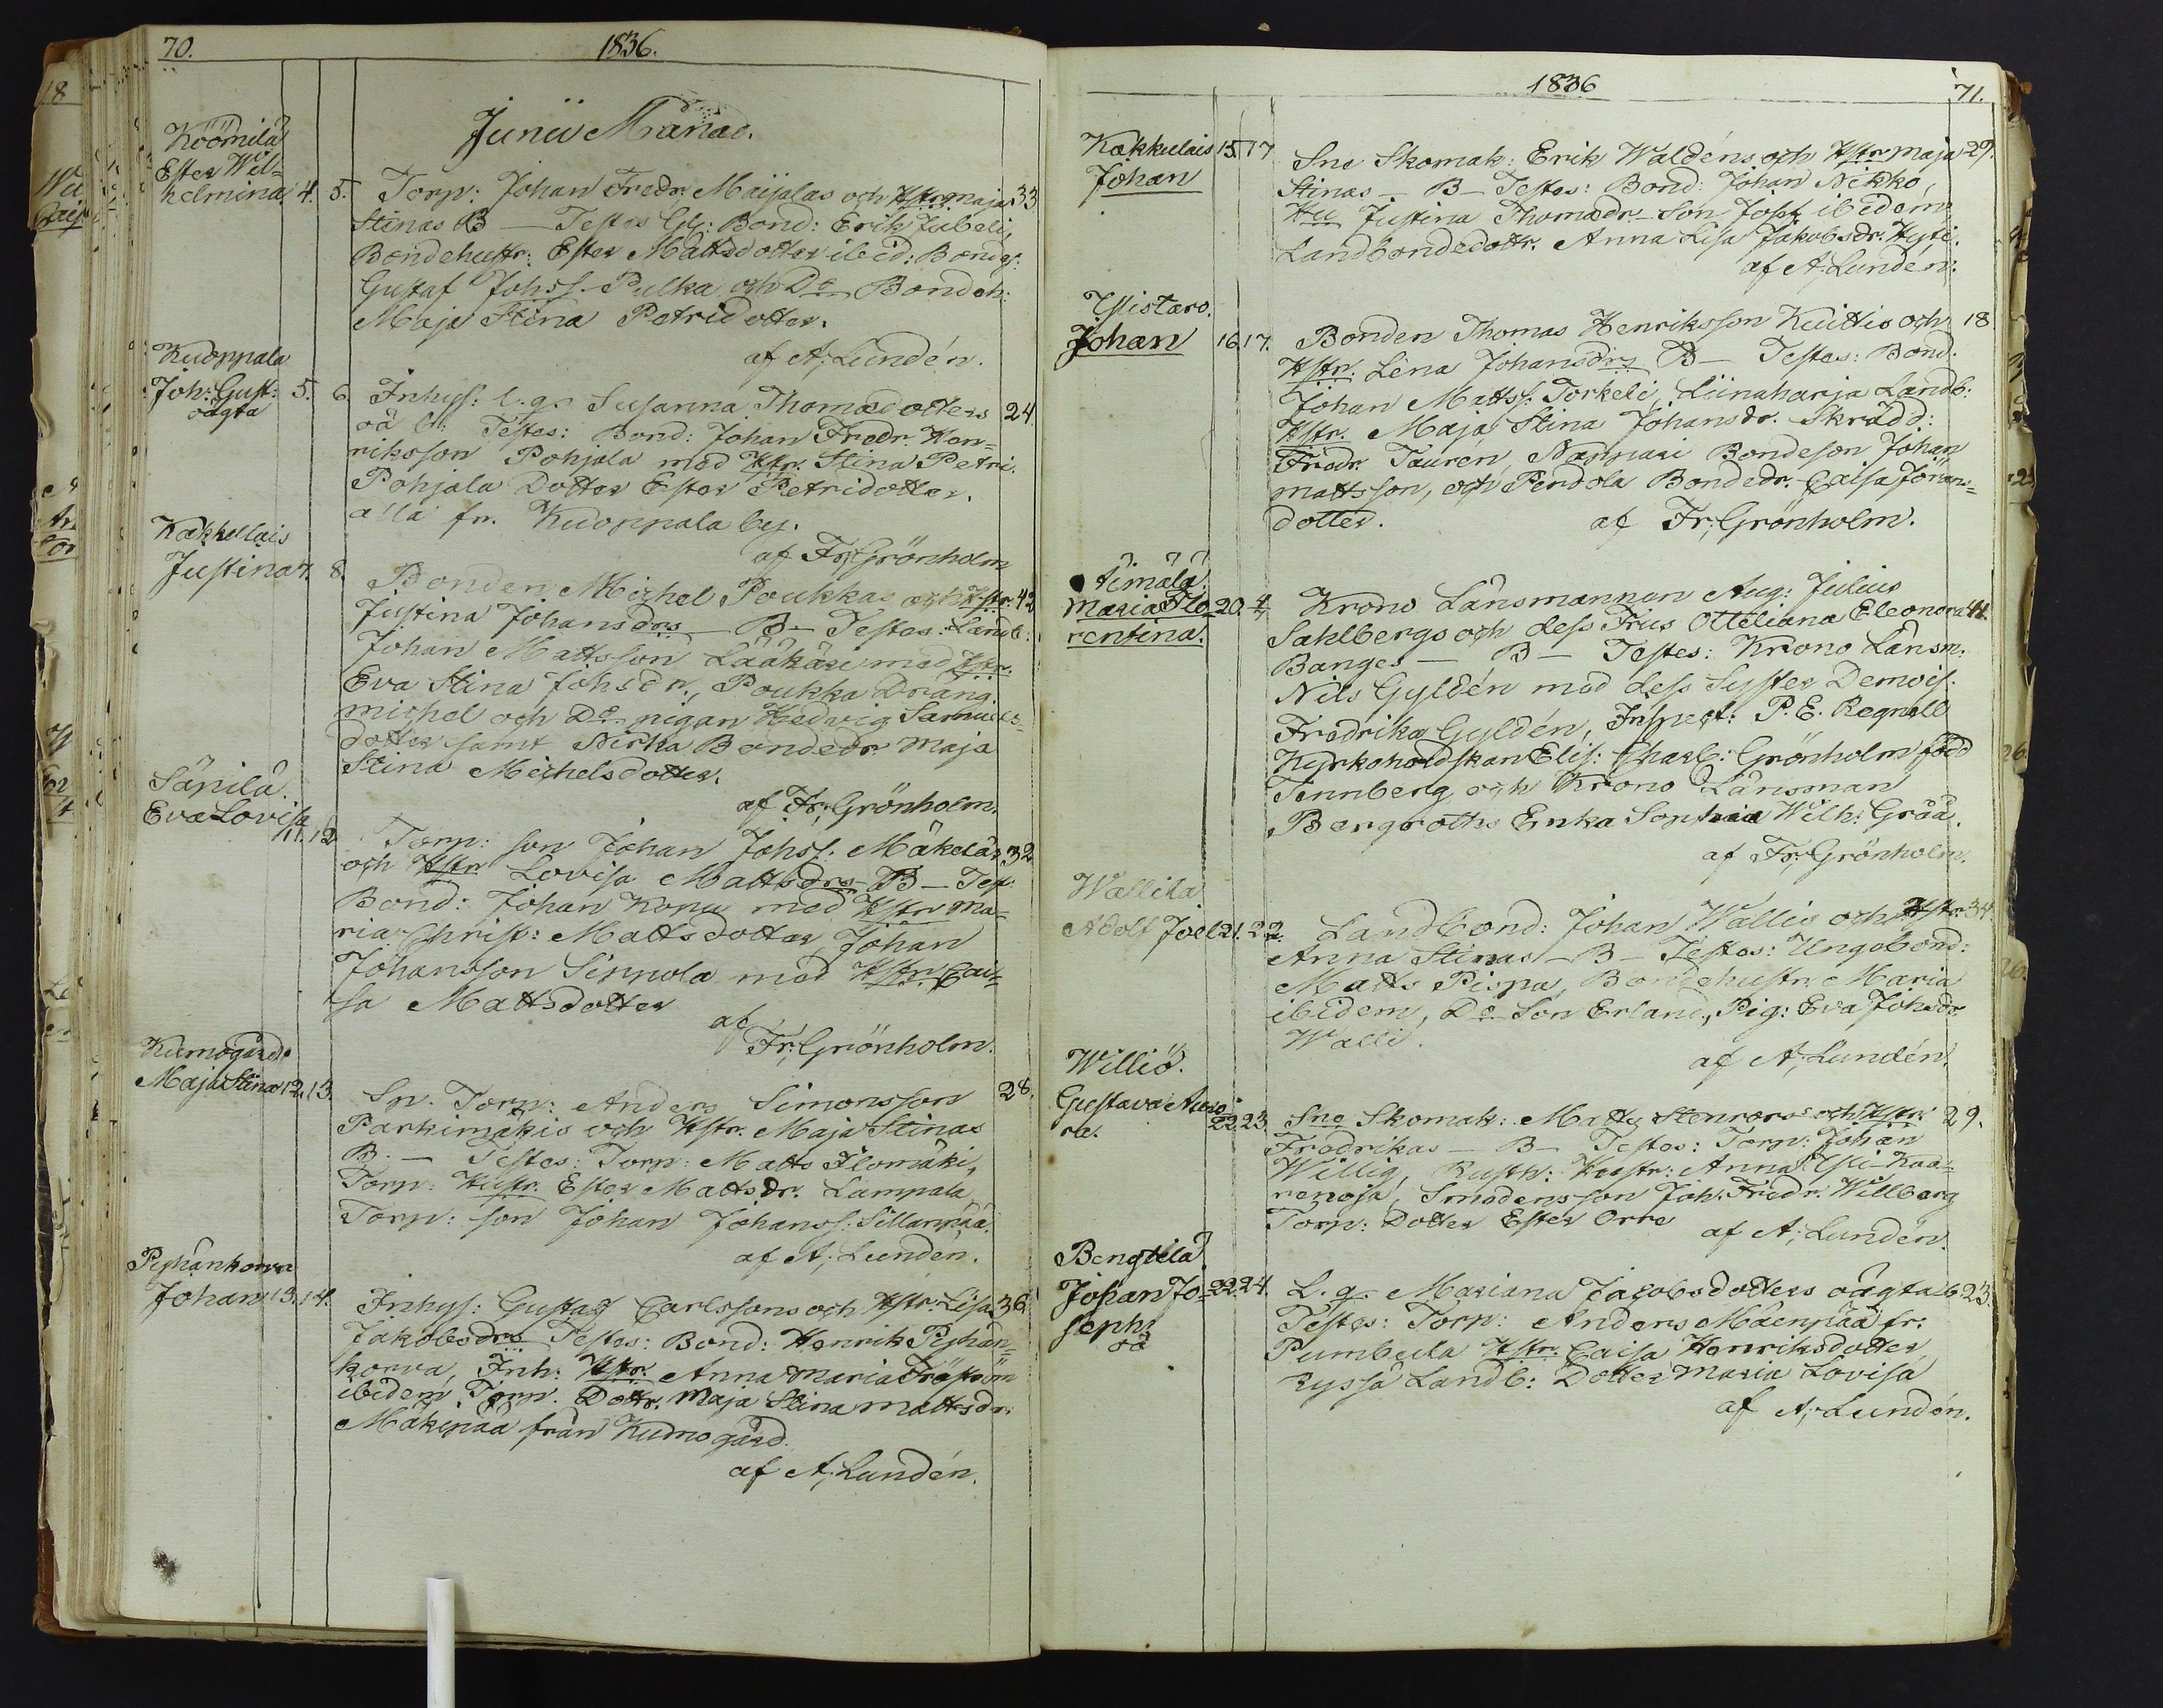 70.
1836.
Junii Månad.
Köömilä
Ester Wil=
helmina 4. 5. Torp: Johan Fredr. Maijalas och Hstr Maja 33
Stinas B — Testes Gl: Bond: Erik Jubeli,
Bondehustr: Ester Mattsdotter ibid: Bondes:
Gustaf Johss. Pulka och Do Bondeh:
Maja Stina Petridotter.
af A; Lundén.
Kuoppala
Joh: Gust: 5. 6. Inhys: l. q. Susanna Thomædotters 24.
oägta
oä b: Testes: Bond: Johan Fredr. Hen=
riksson Pohjala med Hstr. Stina Petri.
Pohjala Dotter Ester Petridotter.
alla fr. Kuoppala by.
af Fr; Grönholm
Kakkulais
Justina 7. 8. Bonden Michel Poukkas och Hstr. 42
Justina Johansdrs — B — Testes: Landb:
Johan Mattsson Lääkäri med Hstr.
Eva Stina Johsdr., Poukka Dräng
Michel och Do pigan Hedvig Samuels=
dotter samt Nirka Bondedr Maja
Stina Michelsdotter.
af Fr; Grönholm.
Sänilä.
Eva Lovisa
11. 12 Torp: son Johan Johss: Mäkeläs 32
och Hstr Lovisa Mattsdrs — B — Test:
Bond: Johan Kopu med Hstr Ma=
ria Christ: Mattsdotter, Johan
Johansson Sippola med Hstr. Cai=
sa Mattsdotter
af
Fr; Grönholm.
Kumogård.
Maja Stina 12. 13. Sn. Torp: Anders Simonsson 28.
Parkimäkis och Hstr. Maja Stinas
B. — Testes: Torp: Matts Ilomäki,
Torp: Hustr. Ester Mattsdr. Lampala,
Torp: son Johan Johanss: Sillanpää.
af A; Lundén.
Pyhänkorva
Johan 13. 14. Inhys: Gustaf Carlssons och Hstr: Lisa 36.
Jakobsdrs Testes: Bond: Henrik Pyhän=
korva, Inh: Hstr: Anna Maria
ibidem Torp. Dottr. Maja Stina Mattsdr.
Mäkipää från Kumogård.
af A; Lundén.
1836
71.
Kakkulais 15. 17 Sne Skomak: Erik Waldéns och Hstr Maja 29.
Johan
Stinas — B — Testes: Bond: Johan Nikko,
Hu Justina Thomædr — Son Josph ibidem
Landbondedottr. Anna Lisa Jakobsdr. Hyti.
af A; Lundén.
Ylistaro.
Johan 16. 17. Bonden Thomas Henriksson Kuittis och 18
Hstr. Lena Johansdrs B — Testes: Bond.
Johan Matts: Torkeli, Liinaharja Landb:
Hstr. Maja Stina Johansdr. Skrädd:
Fredr. Taurén, Nappari Bondeson Johan
Mattsson, och Perdola Bondedr. Caisa Jörans=
dotter. af Fr; Grönholm.
Äimälä
Maria Flo 20. 4/7 Krono Länsmannen Aug: Julius
rentina.
Sahlbergs och dess Frus Otteliana Eleonora 41.
Banges — B — Testes: Krono Länsm.
Nils Gyldén med dess Syster Demois.
Fredrika Gyldén, Inspect: P. E. Regnell
Kyrkoherdskan Elis: Charl: Grönholm född
Tennberg och Krono Länsman
Bergroths Enka Sophia Wilh: Gråå.
af Fr; Grönholm.
Wallila
Adolf Joel 21. 22. Landbond: Johan Wallis och Hstr. 34.
Anna Stinas — B — Testes: Ungabond:
Matts Pispa, Bondehustr. Maria
ibidem, Do Son Erland, Pig: Eva Johsdr
Walli.
af A; Lundén.
Williö.
Gustava Auro=
ra. 22. 23. Sne Skomak: Matts Stenroros och Hstr. 29.
Fredrikas — B — Testes: Torp: Johan
Willig, Rusth: Hustr: Anna Yli-Kaa=
renoja, Smedens son Joh: Fredr: Willberg
Torp: Dotter Ester Orre
af A; Lundén.
Bengtilä
Johan Jo= 22. 24. L. q. Mariana Jacobsdotters oägta b 23.
seph:
oä
Testes: Torp: Anders Mäenpää fr:
Pumbula Hstr. Caisa Henriksdotter,
Ryssä Landb: Dotter Maria Lovisa
af A; Lundén.